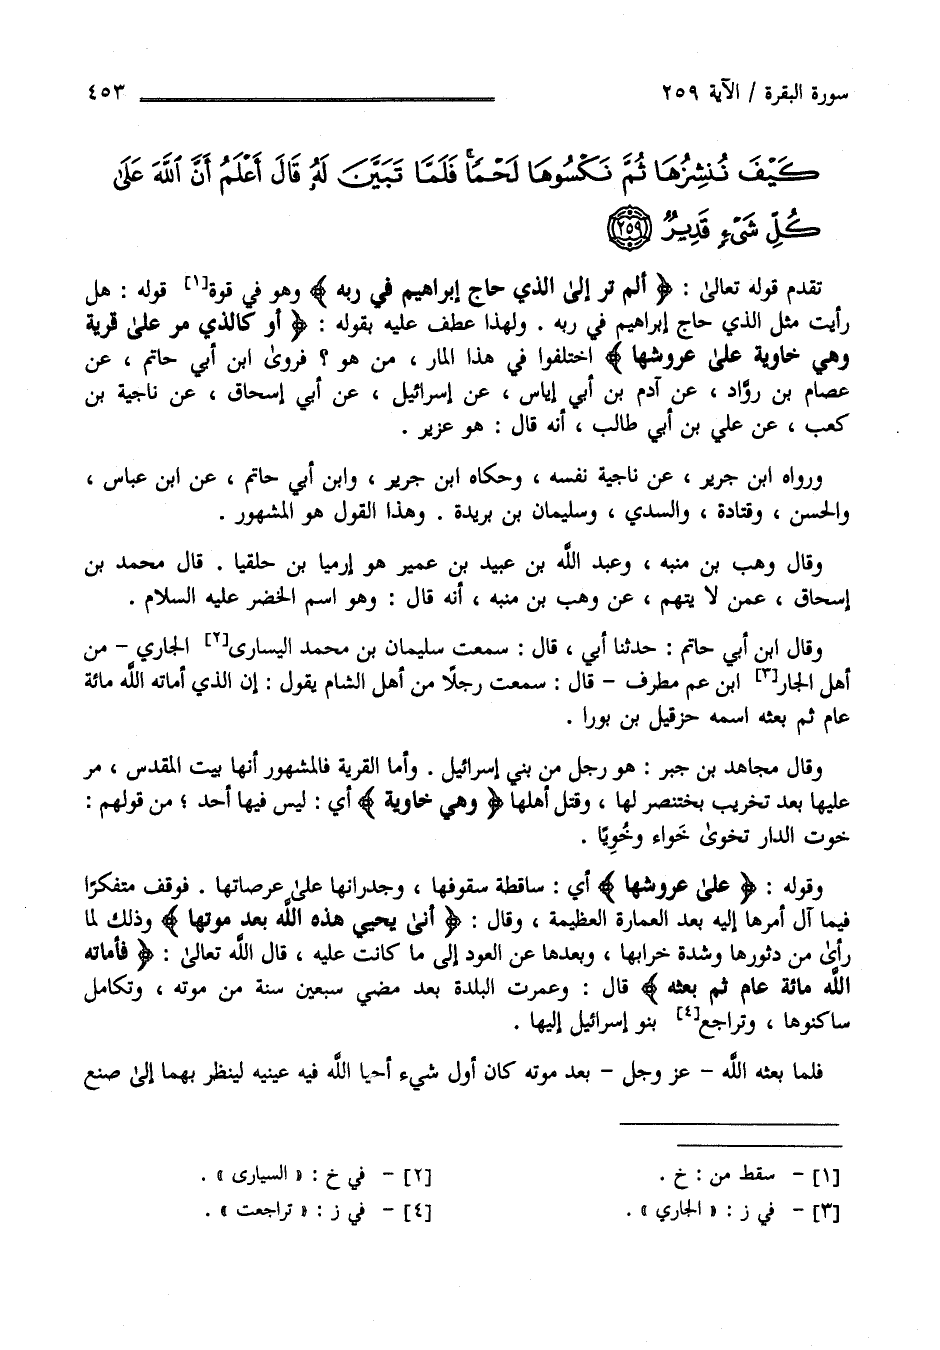 سورة البقرة / الآية ٢٥٩ ٤٥٣
كَيْفَ نُنشِزُهَا ثُمَّ نَكْسُوهَا لَحْمًا فَلَمَّا تَبَيَّنَ لَهُ قَالَ أَعْلَمُ أَنَّ ٱللَّهَ عَلَىٰ
كُلِّ شَىْءٍ قَدِيرٌ ﴿٢٥٩﴾
تقدم قوله تعالىٰ : ﴿ ألم تر إلىٰ الذي حاج إبراهيم في ربه ﴾ وهو في قوة[١] قوله : هل
رأيت مثل الذي حاج إبراهيم في ربه . ولهذا عطف عليه بقوله : ﴿ أو كالذي مر علىٰ قرية
وهي خاوية علىٰ عروشها ﴾ اختلفوا في هذا المار ، من هو ؟ فروىٰ ابن أبي حاتم ، عن
عصام بن روَّاد ، عن آدم بن أبي إياس ، عن إسرائيل ، عن أبي إسحاق ، عن ناجية بن
كعب ، عن علي بن أبي طالب ، أنه قال : هو عزير .
ورواه ابن جرير ، عن ناجية نفسه ، وحكاه ابن جرير ، وابن أبي حاتم ، عن ابن عباس ،
والحسن ، وقتادة ، والسدي ، وسليمان بن بريدة . وهذا القول هو المشهور .
وقال وهب بن منبه ، وعبد اللَّه بن عبيد بن عمير هو إرميا بن حلقيا . قال محمد بن
إسحاق ، عمن لا يتهم ، عن وهب بن منبه ، أنه قال : وهو اسم الخضر عليه السلام .
وقال ابن أبي حاتم : حدثنا أبي ، قال : سمعت سليمان بن محمد اليسارى[٢] الجاري – من
أهل الجار[٣] ابن عم مطرف – قال : سمعت رجلًا من أهل الشام يقول : إن الذي أماته اللَّه مائة
عام ثم بعثه اسمه حزقيل بن بورا .
وقال مجاهد بن جبر : هو رجل من بني إسرائيل . وأما القرية فالمشهور أنها بيت المقدس ، مر
عليها بعد تخريب بختنصر لها ، وقتل أهلها ﴿ وهي خاوية ﴾ أي : ليس فيها أحد ؛ من قولهم :
خوت الدار تخوىٰ خَواء وخُوِيًا .
وقوله : ﴿ علىٰ عروشها ﴾ أي : ساقطة سقوفها ، وجدرانها علىٰ عرصاتها . فوقف متفكرًا
فيما آل أمرها إليه بعد العمارة العظيمة ، وقال : ﴿ أنىٰ يحيي هذه اللَّه بعد موتها ﴾ وذلك لما
رأىٰ من دثورها وشدة خرابها ، وبعدها عن العود إلى ما كانت عليه ، قال اللَّه تعالىٰ : ﴿ فأماته
اللَّه مائة عام ثم بعثه ﴾ قال : وعمرت البلدة بعد مضي سبعين سنة من موته ، وتكامل
ساكنوها ، وتراجع[٤] بنو إسرائيل إليها .
فلما بعثه اللَّه – عز وجل – بعد موته كان أول شيء أحيا اللَّه فيه عينيه لينظر بهما إلىٰ صنع
[١] – سقط من : خ . [٢] – في خ : « السيارى » .
[٣] – في ز : « الجاري » . [٤] – في ز : « تراجعت » .